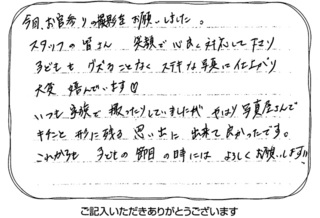 今回、お宮参りの撮影をお願いしました。
スタッフの皆さん 笑顔で心良く対応して下さり
子どももグズることなく ステキな写真に仕上がり
大変 喜んでいます
いつも家族で撮ったりしていましたが やはり写真屋さんで
キチンと形に残る 思い出に 出来て良かったです。
これからも 子どもの節目の時には よろしくお願いします!!
ご記入いただきありがとうございます